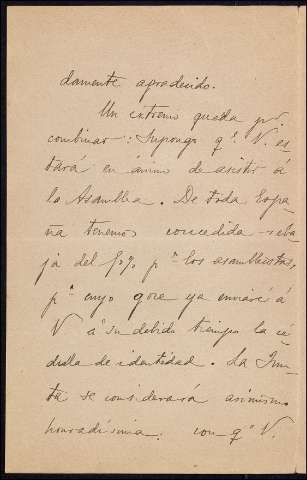 damente agradecido.
Un extremo queda por
combinar: Supongo qe. V. es-
tará en ánimo de asistir á
la Asamblea. De toda Espa-
ña tenemos concedida reba-
ja del 50% pa. los asambleistas,
pa. cuyo goce ya enviaré á
V á su debido tiempo la cé-
dula de identidad. La Jun-
ta se considerará asimismo
honradísima: con qe. V.